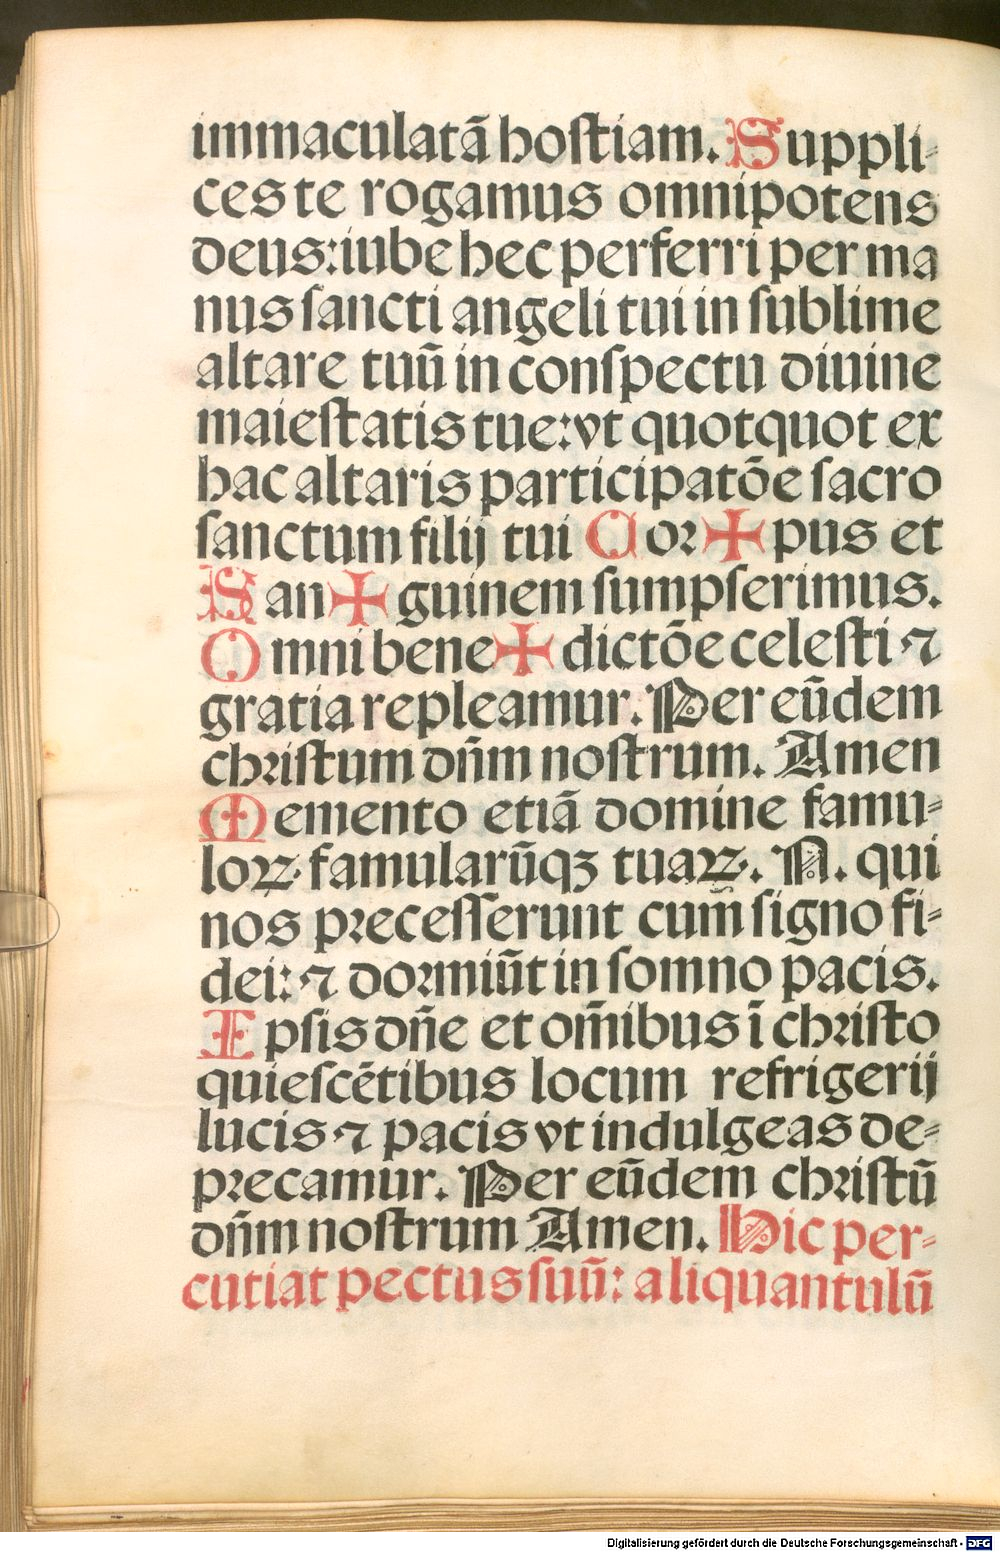 immaculatā hoſtiam. Suppli⸗
ces te rogamus omnipotens
deus: iube hec perferri per ma
nus ſancti angeli tui in ſublime
altare tuū in conſpectu diuine
maieſtatis tue: vt quotquot ex
hac altaris participatōe ſacro
ſanctum filij tui Coꝛ ✠ pus et
San ✠ guinem sumpſerimus.
Omni bene ✠ dictōe celeſti ⁊
gratia repleamur. Per eūdem
chꝛiſtum dn̄m noſtrum. Amen
Memento etiā domine famu⸗
loꝝ famularūqꝫ tuaꝝ. N. qui
nos pꝛeceſſerunt cum̄ ſigno fi⸗
dei: ⁊ doꝛmiūt in ſomno pacis.
Ipſis dn̄e et om̄ibus ī chꝛiſto
quieſcētibus locum refrigerij
lucis ⁊ pacis vt indulgeas de⸗
pꝛecamur. Per eūdem chꝛiſtū
dn̄m noſtrum Amen. Hic per⸗
cutiat pectus ſuū: aliquantulū
Digitalisierung gefördert durch die Deutsche Forschungsgemeinschaft - DFG